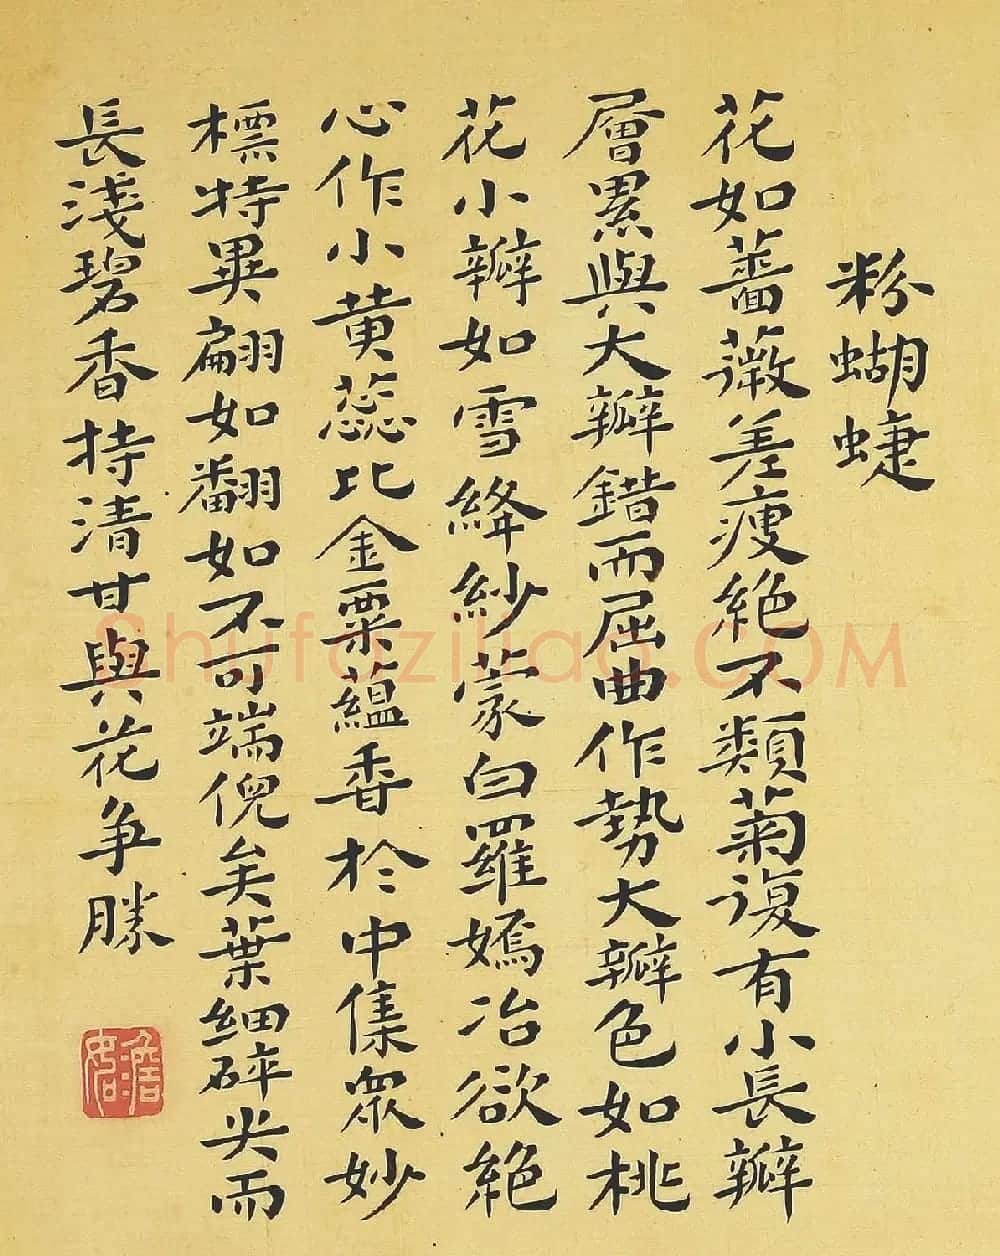 粉蝴蜨
花如薔薇差瘦絕不類菊復有小長瓣
層累與大瓣錯而屈曲作勢大瓣色如桃
花小瓣如雪絳紗蒙白羅嫣冶欲絕
心作小黄蕊比金粟蘊香於中集眾妙
標特異翩如翻如不可端倪矣葉細碎尖而
長淺碧香持清甘與花争勝
澹如
Shufaziliao.COM